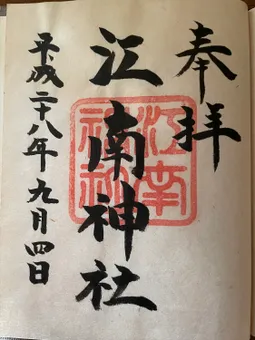 奉拝
江南神社
平成二十八年九月四日
江南神社